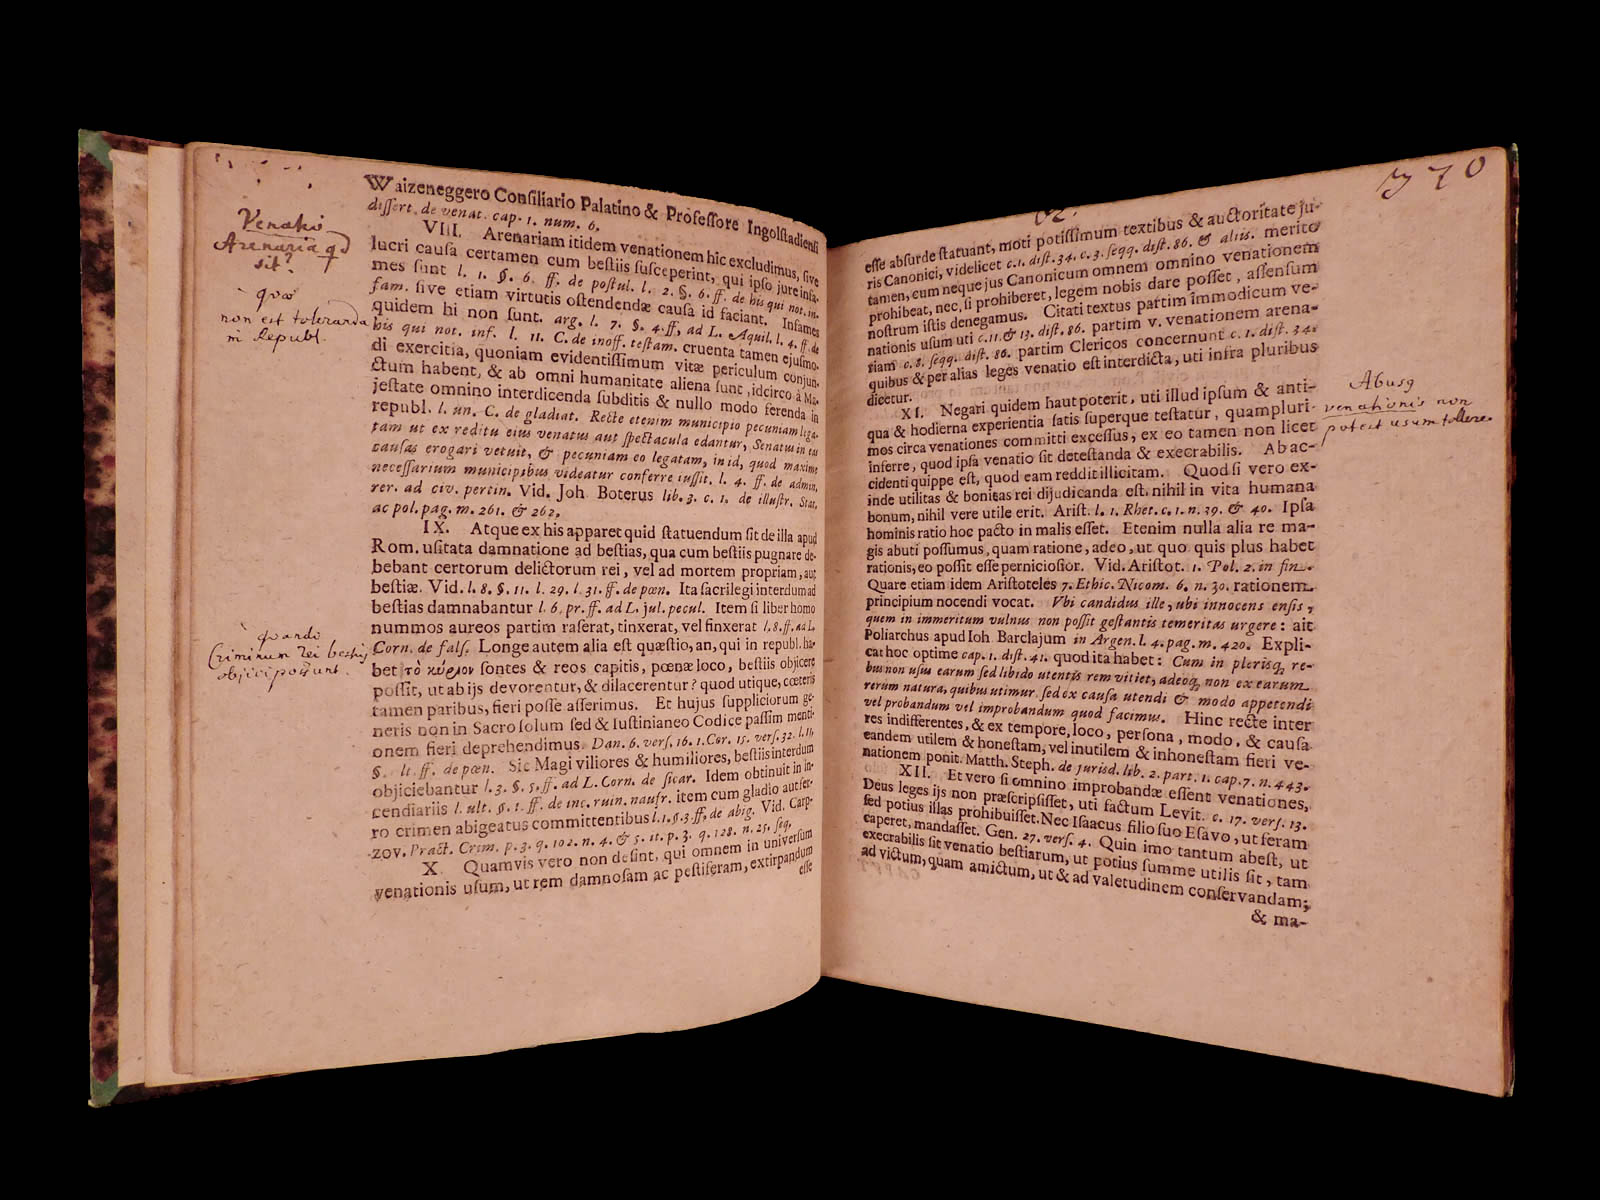 Venatio
Arenaria qd
sit?
quæ
non est toleranda
in Republ.
quando
Criminum rei bestijs
objici possunt.
Waizeneggero Consiliario Palatino & Professore Ingolstadiensi
dissert. de venat. cap. 1. num. 6.
VIII. Arenariam itidem venationem hic excludimus, sive
lucri causa certamen cum bestiis susceperint, qui ipso jure infa-
mes sunt l. 1. §. 6. ff. de postul. l. 2. §. 6. ff. de his qui not. in-
fam. sive etiam virtutis ostendendæ causa id faciant. Infames
quidem hi non sunt. arg. l. 7. §. 4. ff. ad L. Aquil. l. 4. ff. de
his qui not. inf. l. 11. C. de inoff. testam. cruenta tamen ejusmo-
di exercitia, quoniam evidentissimum vitæ periculum conjun-
ctum habent, & ab omni humanitate aliena sunt, idcirco à Ma-
jestate omnino interdicenda subditis & nullo modo ferenda in
republ. l. un. C. de gladiat. Recte etenim municipio pecuniam lega-
tam ut ex reditu ejus venatus aut spectacula edantur, Senatus in eas
causas erogari vetuit, & pecuniam eo legatam, in id, quod maxime
necessarium municipibus videatur conferre jussit. l. 4. ff. de admin.
rer. ad civ. pertin. Vid. Joh. Boterus lib. 3. c. 1. de illustr. Stat.
ac pol. pag. m. 261. & 262.
IX. Atque ex his apparet quid statuendum sit de illa apud
Rom. usitata damnatione ad bestias, qua cum bestiis pugnare de-
bebant certorum delictorum rei, vel ad mortem propriam, aut
bestiæ. Vid. l. 8. §. 11. l. 29. l. 31. ff. de pœn. Ita sacrilegi interdum ad
bestias damnabantur l. 6. pr. ff. ad L. jul. pecul. Item si liber homo
nummos aureos partim raserat, tinxerat, vel finxerat l. 8. ff. ad L.
Corn. de fals. Longe autem alia est quæstio, an, qui in republ. ha-
bet τὸ κύριον sontes & reos capitis, pœnæ loco, bestiis objicere
possit, ut ab ijs devorentur, & dilacerentur? quod utique, cœteris
tamen paribus, fieri posse asserimus. Et hujus suppliciorum ge-
neris non in Sacro solum sed & Iustinianeo Codice passim menti-
onem fieri deprehendimus. Dan. 6. vers. 16. 1. Cor. 15. vers. 32. l. 11,
§. ult. ff. de pœn. Sic Magi viliores & humiliores, bestiis interdum
objiciebantur l. 3. §. 5. ff. ad L. Corn. de sicar. Idem obtinuit in in-
cendiariis l. ult. §. 1. ff. de inc. ruin. naufr. item cum gladio aut fer-
ro crimen abigeatus committentibus l. 1. §. 3. ff. de abig. Vid. Carp-
zov. Pract. Crim. p. 3. q. 102. n. 4. & 5. it. p. 3. q. 128. n. 25. seq.
X. Quamvis vero non desint, qui omnem in universum
venationis usum, ut rem damnosam ac pestiferam, extirpandum
esse
370
esse absurde statuant, moti potissimum textibus & auctoritate ju-
ris Canonici, videlicet c. 1. dist. 34. c. 3. seqq. dist. 86. & aliis. merito
tamen, cum neque jus Canonicum omnem omnino venationem
prohibeat, nec, si prohiberet, legem nobis dare posset, assensum
nostrum istis denegamus. Citati textus partim immodicum ve-
nationis usum uti c. 11. & 13. dist. 86. partim v. venationem arena-
riam c. 8. seqq. dist. 86. partim Clericos concernunt c. 1. dist. 34.
quibus & per alias leges venatio est interdicta, uti infra pluribus
dicetur.
XI. Negari quidem haut poterit, uti illud ipsum & anti-
qua & hodierna experientia satis superque testatur, quampluri-
mos circa venationes committi excessus, ex eo tamen non licet
inferre, quod ipsa venatio sit detestanda & execrabilis. Ab ac-
cidenti quippe est, quod eam reddit illicitam. Quod si vero ex-
inde utilitas & bonitas rei dijudicanda est, nihil in vita humana
bonum, nihil vere utile erit. Arist. l. 1. Rhet. c. 1. n. 39. & 40. Ipsa
hominis ratio hoc pacto in malis esset. Etenim nulla alia re ma-
gis abuti possumus, quam ratione, adeo, ut quo quis plus habet
rationis, eo possit esse perniciosior. Vid. Aristot. 1. Pol. 2. in fin.
Quare etiam idem Aristoteles 7. Ethic. Nicom. 6. n. 30. rationem
principium nocendi vocat. Vbi candidus ille, ubi innocens ensis,
quem in immeritum vulnus non possit gestantis temeritas urgere: ait
Poliarchus apud Ioh. Barclajum in Argen. l. 4. pag. m. 420. Expli-
cat hoc optime cap. 1. dist. 41. quod ita habet: Cum in plerisq; re-
bus non usus earum sed libido utentis rem vitiet, adeoq; non ex earum
rerum natura, quibus utimur, sed ex causa utendi & modo appetendi
vel probandum vel improbandum quod facimus. Hinc recte inter
res indifferentes, & ex tempore, loco, persona, modo, & causa
eandem utilem & honestam, vel inutilem & inhonestam fieri ve-
nationem ponit. Matth. Steph. de jurisd. lib. 2. part. 1. cap. 7. n. 443.
XII. Et vero si omnino improbandæ essent venationes,
Deus leges ijs non præscripsisset, uti factum Levit. c. 17. vers. 13.
sed potius illas prohibuisset. Nec Isaacus filio suo Esavo, ut feram
caperet, mandasset. Gen. 27. vers. 4. Quin imo tantum abest, ut
execrabilis sit venatio bestiarum, ut potius summe utilis sit, tam
ad victum, quam amictum, ut & ad valetudinem conservandam;
& ma-
Abusq
venationis non
potest usum tollere.